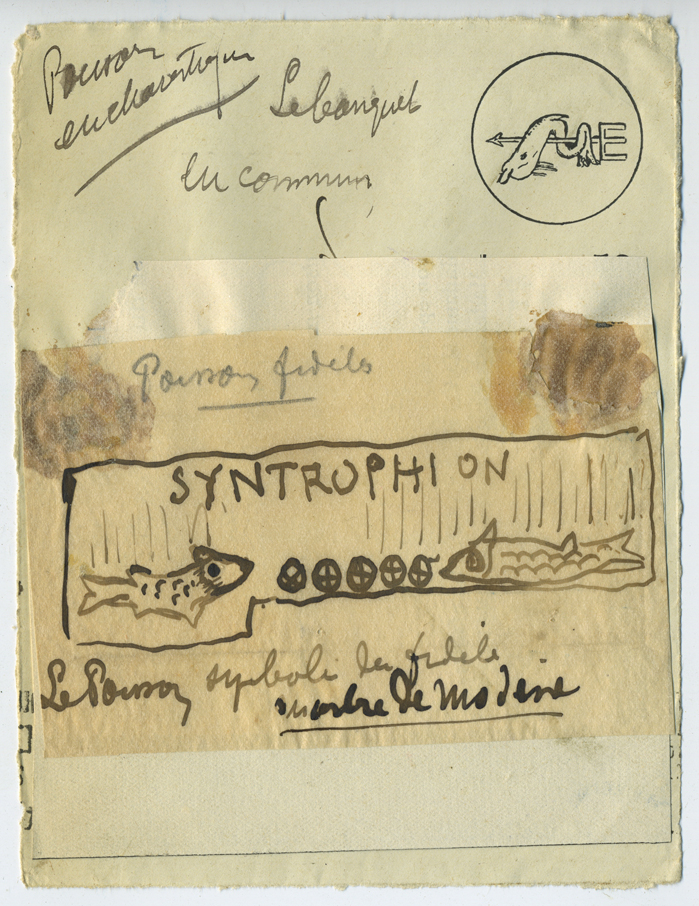 Poisson
eucharistique
Le banquet
en commun
E
Poisson fidèle
SYNTROPHION
Le Poisson symbole du fidèle
marbre de Modène